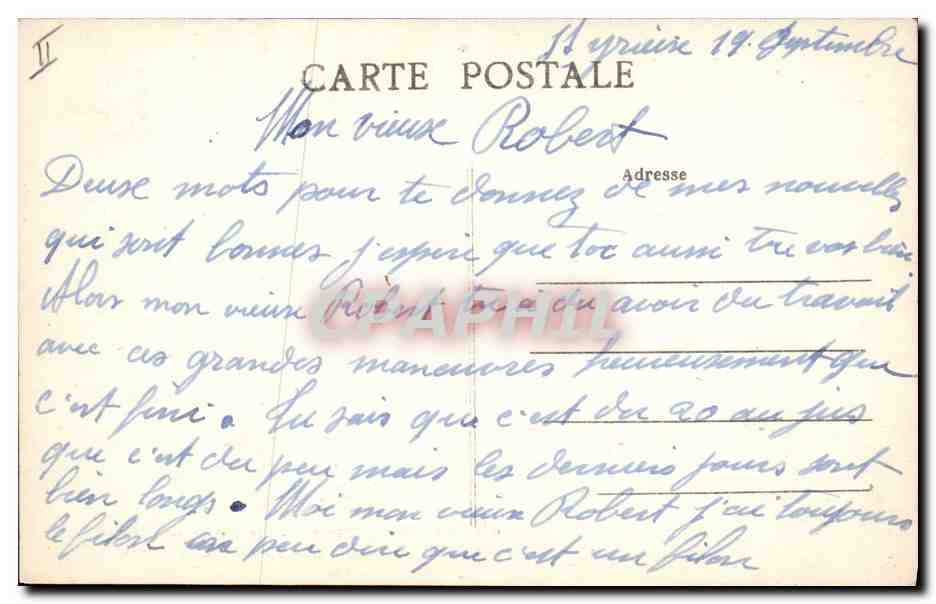 II
St yrieix 19 Septembre
CARTE POSTALE
Mon vieux Robert
Adresse
Deux mots pour te donnez de mes nouvelles
qui sont bonnes j'espere que toi aussi tu vas bien
Alors mon vieux Robert tu a du avoir du travail
CPAPHIL
avec ces grandes manœuvres heureusement que
c'est fini. Tu sais que c'est du 20 au jus
que c'est du peu mais les derniers jours sont
bien longs. Moi mon vieux Robert j'ai toujours
le filon on peu dire que c'est un filon